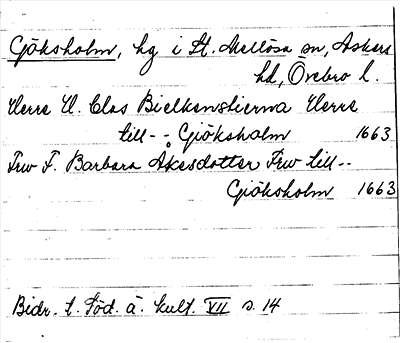 Gjöksholm, hg i St. Mellösa sn, Askers
hd, Örebro l.
Herre H. Clas Bielkenstierna Herre
till-- Gjöksholm 1663
Frw F. Barbara Åkesdotter Frw till--
Gjöksholm 1663
Bidr. t. Söd. ä. kult. VII s. 14